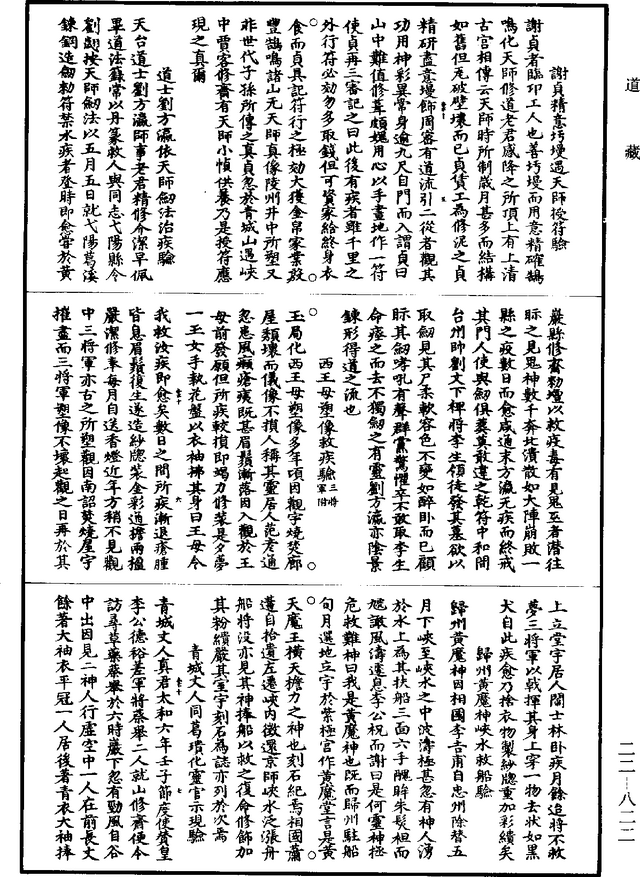 道藏
謝貞精意圬墁遇天師授符驗
謝貞者臨邛工人也善圬墁而用意精確鵠
鳴化天師修道老君感降之所頂上有上清
古宮相傳云天師時所制歲月甚多而結構
如舊但瓦破壁壞而已貞賃工為修泥之貞
精研盡意墁飾周密有道流引二從者觀其
功用神彩異常身逾九尺自門而入謂貞曰
山中難值修葺頗媿用心以手畫地作一符
使貞再三審記之曰此後有疾者雖千里之
外行符必効勿多取錢但可資家給終身衣
食而貞具記符行之極効大獲金帛家業殷
豐鵠鳴諸山无天師真像陵州井中所塑又
非世代子孫所傳之真貞忽於青城山遇峽
中賈客修齋有天師小幀供養乃是授符應
現之真爾
道士劉方瀛依天師劔法治疾驗
天台道士劉方瀛師事老君精修介潔早佩
畢道法籙常以丹篆救人與同志弋陽縣令
劉翽按天師劔法以五月五日就弋陽葛溪
鍊鋼造劔勑符禁水疾者登時即愈嘗於黃
巖縣修齋勑壇以救疫毒有見鬼巫者潛往
眎之見鬼神數千奔北潰散如大陣崩敗一
縣之疫數日而愈咸通末方瀛无疾而終戒
其門人使與劔俱葬莫敢違之乾符中和間
台州帥劉文下裨將李生領徒發其墓欲以
取劔見其尸柔軟容色不變如醉卧而已顧
眎其劔哮吼有聲群黨驚懼卒不敢取李生
命瘞之而去不獨劔之有靈劉方瀛亦陰景
鍊形得道之流也
西王母塑像救疾驗三將軍附
玉局化西王母塑像多年頃因觀宇燒焚廊
屋頹壞而儀像不損人稱其靈居人范彥通
忽患風癩瘡痍既甚眉鬚漸落因入觀於王
母前發願但所疾較損即竭力修裝是夕夢
一玉女手執花盤以衣袖拂其身曰王母令
我救汝疾即愈矣數日之間所疾漸退瘡腫
皆息眉鬚復生遂造紗牕裝金彩通檐兩楹
嚴潔修奉每月自送香燈近年方稍不見觀
中三將軍亦古之所塑觀因南詔焚燒屋宇
摧盡而三將軍塑像不壞起觀之日再於其
上立堂宇居人閻士林卧疾月餘迨將不救
夢三將軍以戟揮其身上穿一物去狀如黑
犬自此疾愈乃捨衣物製紗牕重加彩繢矣
歸州黃魔神峽水救船驗
歸州黃魔神因相國李吉甫自忠州除替五
月下峽至峽水之中波濤極甚忽有神人湧
於水上為其扶船三面六手醜眸朱髮袒而
虓譀風濤遽息李公祝而謝曰是何靈神拯
危救難神曰我是黃魔神也既而歸州駐船
旬月選地立宇於紫極宮作黃魔堂言是黃
天魔王橫天擔力之神也刻石紀焉相國蕭
遘自拾遺左遷峽內徵還京師峽水泛漲舟
船將没亦見其神捧船以救之復命修飾加
其粉繢嚴其室宇刻石為誌亦列於次焉
青城丈人同葛璝化靈官示現驗
青城丈人真君太和六年壬子節度使贊皇
李公德裕差軍將蔡舉二人就山修齋便令
訪尋草藥蔡舉於六時巖下忽有勁風自谷
中出因見二神人行虛空中一人在前長丈
餘著大袖衣平冠一人居後著青衣大袖捧
二二—八二二